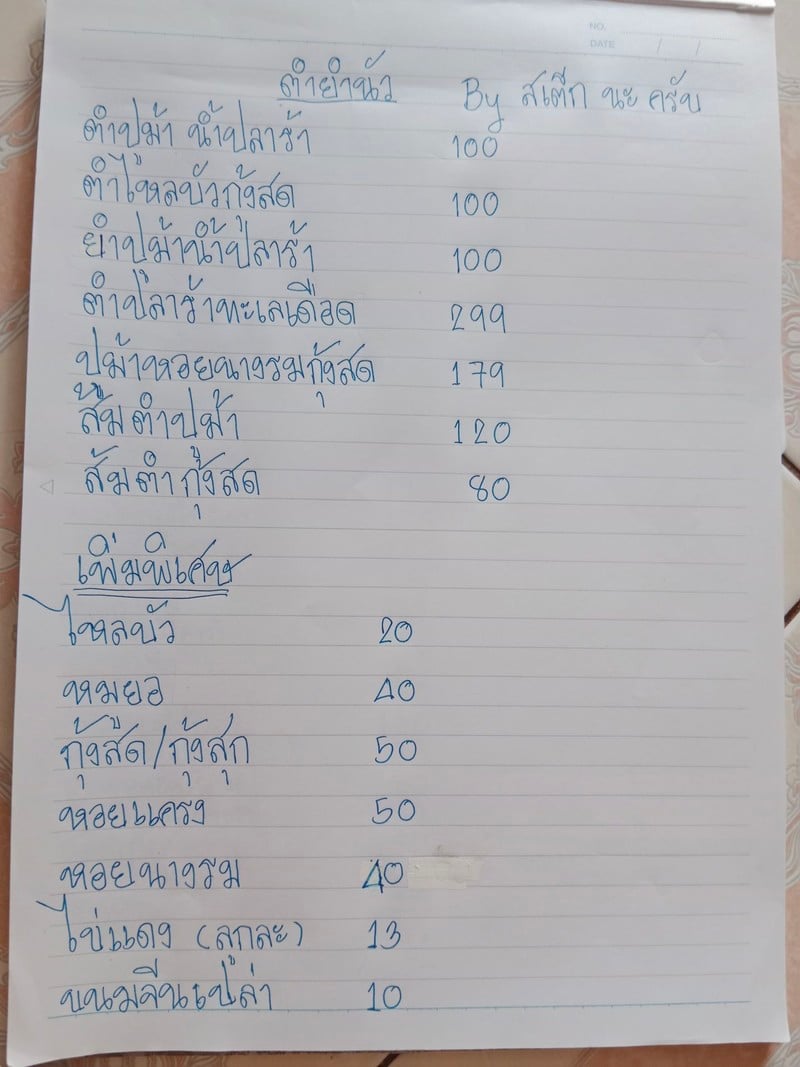 NO.
DATE / /
ตำยำนัว By สเต็ก นะ ครับ
ตำปูม้า น้ำปลาร้า 100
ตำไหลบัวกุ้งสด 100
ยำปูม้าน้ำปลาร้า 100
ตำปลาร้าทะเลเดือด 299
ปูม้าหอยนางรมกุ้งสด 179
ส้มตำปูม้า 120
ส้มตำกุ้งสด 80
เพิ่มพิเศษ
ไหลบัว 20
หมูยอ 40
กุ้งสด/กุ้งสุก 50
หอยแครง 50
หอยนางรม 40
ไข่แดง (ลูกละ) 13
ขนมจีนเปล่า 10